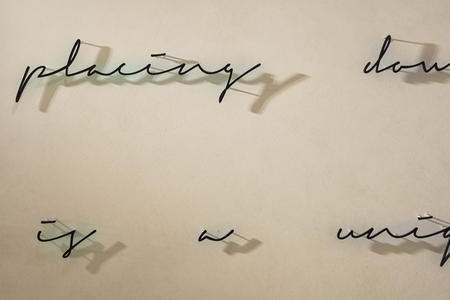 placing dow
is a uniq